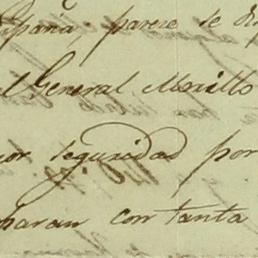 España parece se
General Morillo
or seguridad por
paran con tanta